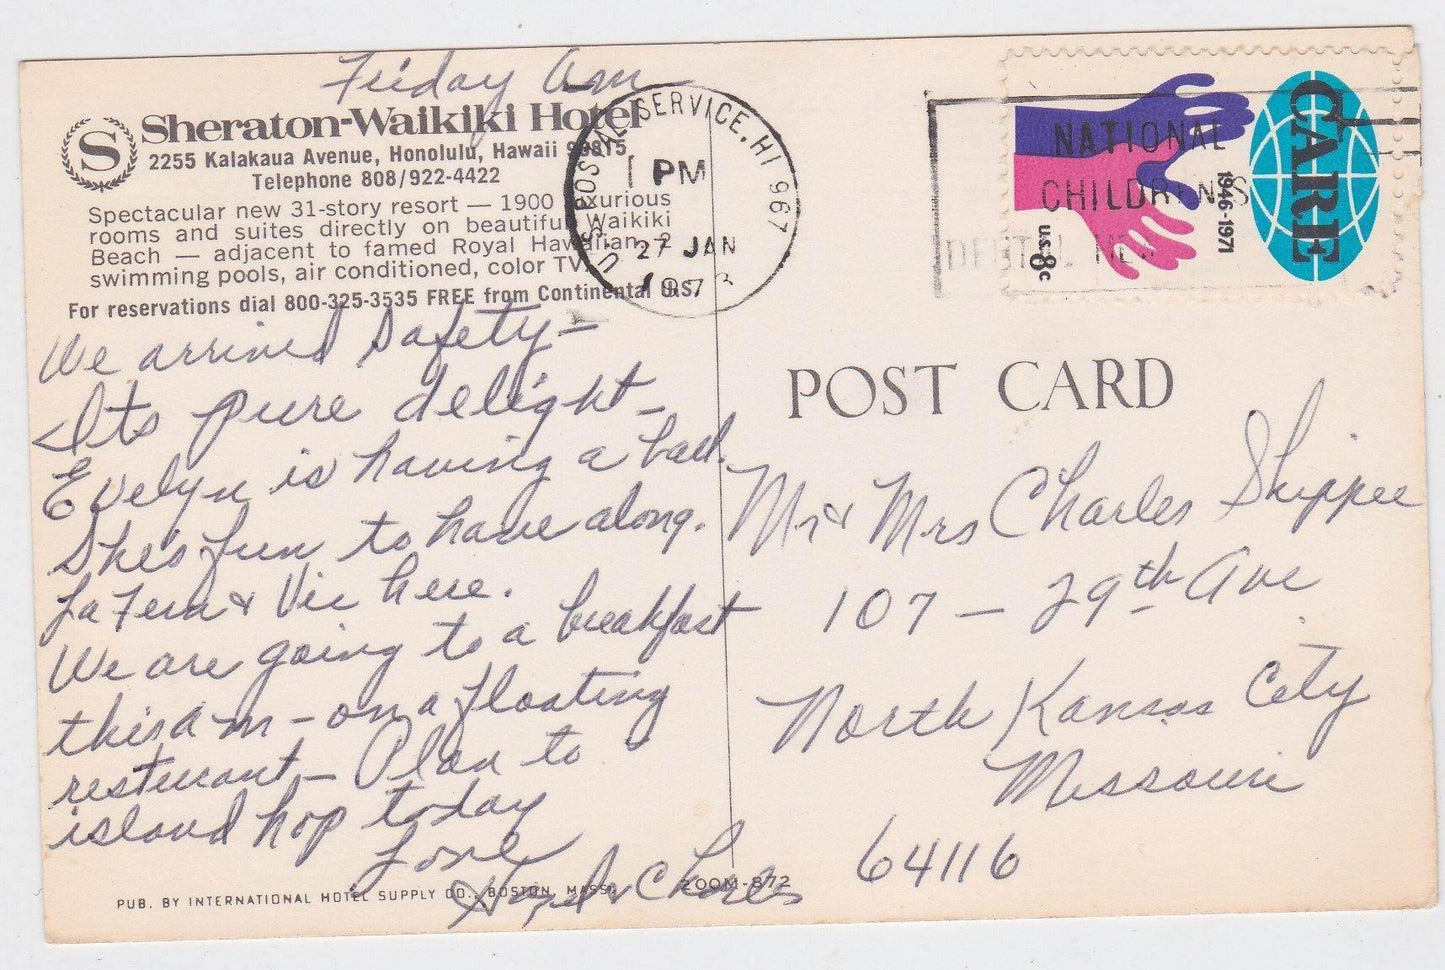 Friday am
S Sheraton-Waikiki Hotel
2255 Kalakaua Avenue, Honolulu, Hawaii 96815
Telephone 808/922-4422
Spectacular new 31-story resort — 1900 luxurious
rooms and suites directly on beautiful Waikiki
Beach — adjacent to famed Royal Hawaiian, 2
swimming pools, air conditioned, color TV.
For reservations dial 800-325-3535 FREE from Continental U.S.
We arrived Safety —
Its pure delight —
Evelyn is having a ball.
She's fun to have along.
LaFern & Vic here.
We are going to a breakfast
this am — on a floating
resturant — Plan to
island hop today
Love
Hazel & Charles
PUB. BY INTERNATIONAL HOTEL SUPPLY CO., BOSTON, MASS.
ZOOM-872
U.S. POSTAL SERVICE, HI 967
PM
27 JAN
197
NATIONAL
CHILDREN'S
DENTAL
CARE
1946-1971
U.S. 8c
POST CARD
Mr & Mrs Charles Skippee
107 — 29th Ave
North Kansas City
Missouri
64116